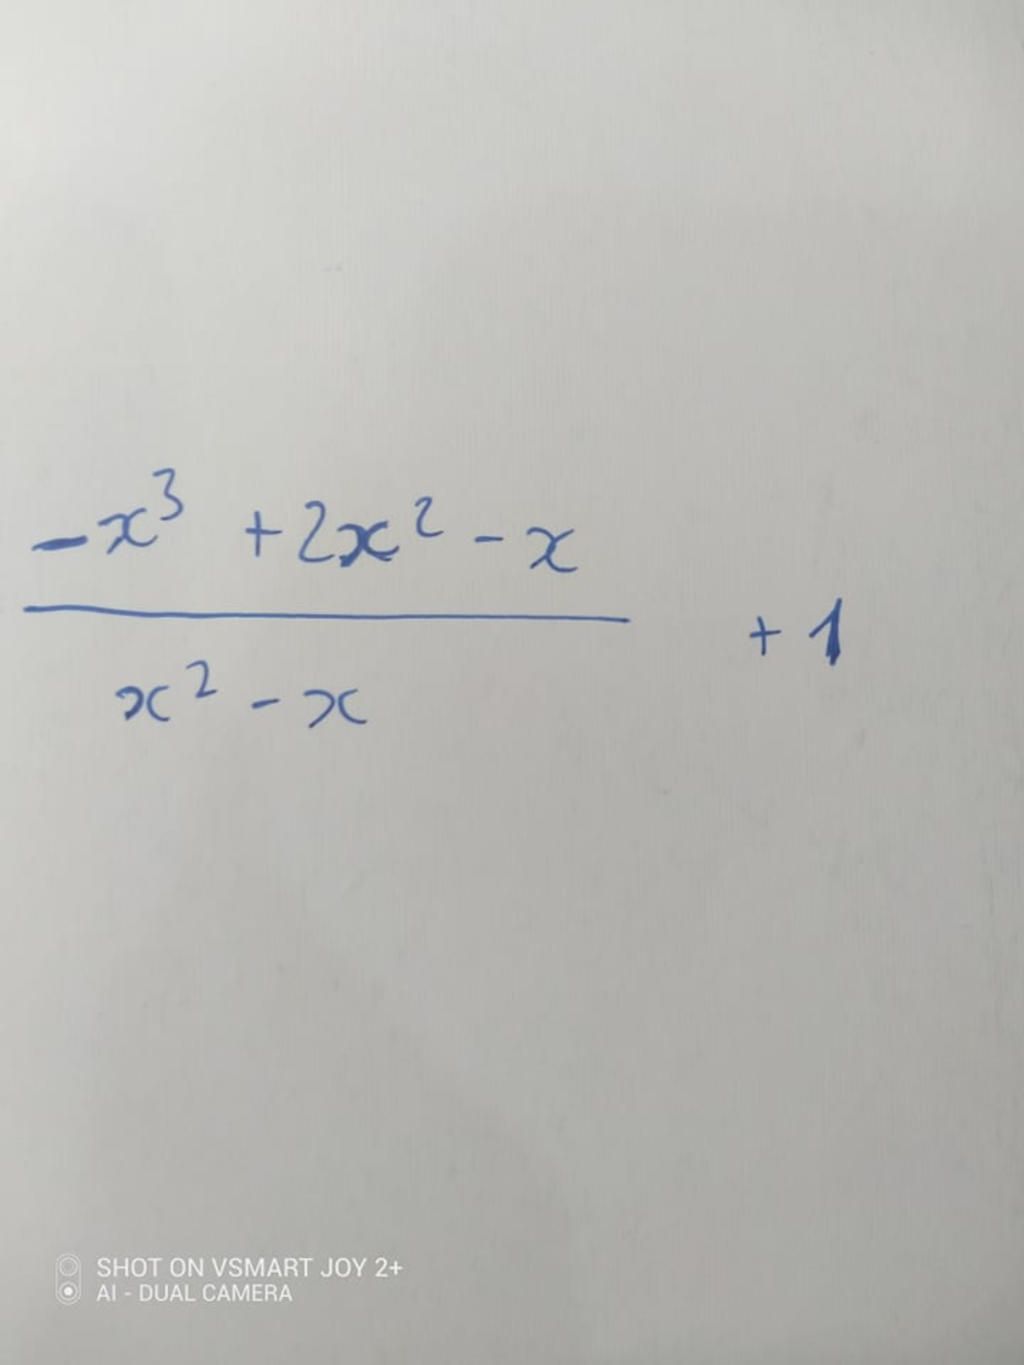 -x³ + 2x² - x
x² - x
+ 1
SHOT ON VSMART JOY 2+
AI - DUAL CAMERA